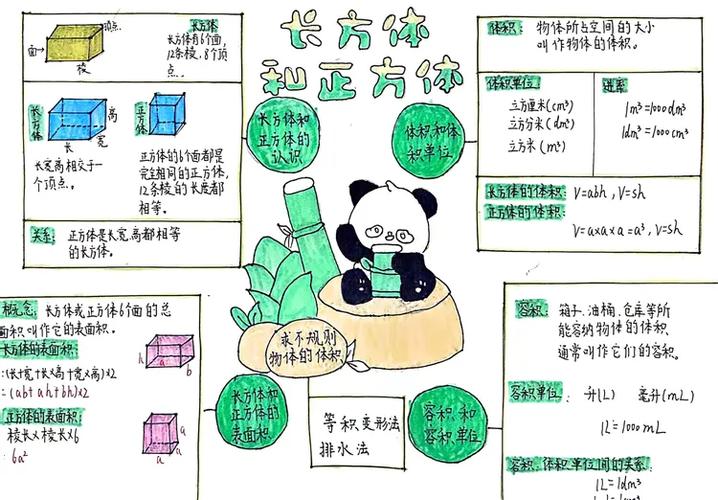 长方体
和正方体
顶点
面
棱
长方体
长方体有6个面,
12条棱,8个顶
点.
长方体
高
长
宽
长宽高相交于一
个顶点。
正方体
正方体的6个面都是
完全相同的正方体,
12条棱的长度都
相等。
关系: 正方体是长宽高都相等
的长方体。
长方体和
正方体的
认识
体积和体
积单位
体积: 物体所占空间的大小
叫作物体的体积。
体积单位
立方厘米(cm³)
立方分米(dm³)
立方米(m³)
进率
1m³=1000dm³
1dm³=1000cm³
长方体的体积: V=abh, V=sh
正方体的体积:
V=a×a×a=a³, V=sh
求不规则
物体的体积
等积变形法
排水法
概念: 长方体或正方体6个面的总
面积叫作它的表面积。
长方体的表面积:
=(长×宽+长×高+宽×高)×2
=(ab+ah+bh)×2
h
a
b
正方体的表面积:
棱长×棱长×6
6a²
a
a
a
长方体和
正方体的
表面积
容积和
容积单位
容积: 箱子、油桶、仓库等所
能容纳物体的体积,
通常叫作它们的容积。
容积单位: 升(L) 毫升(mL)
1L=1000mL
容积、体积单位间的关系:
1L=1dm³